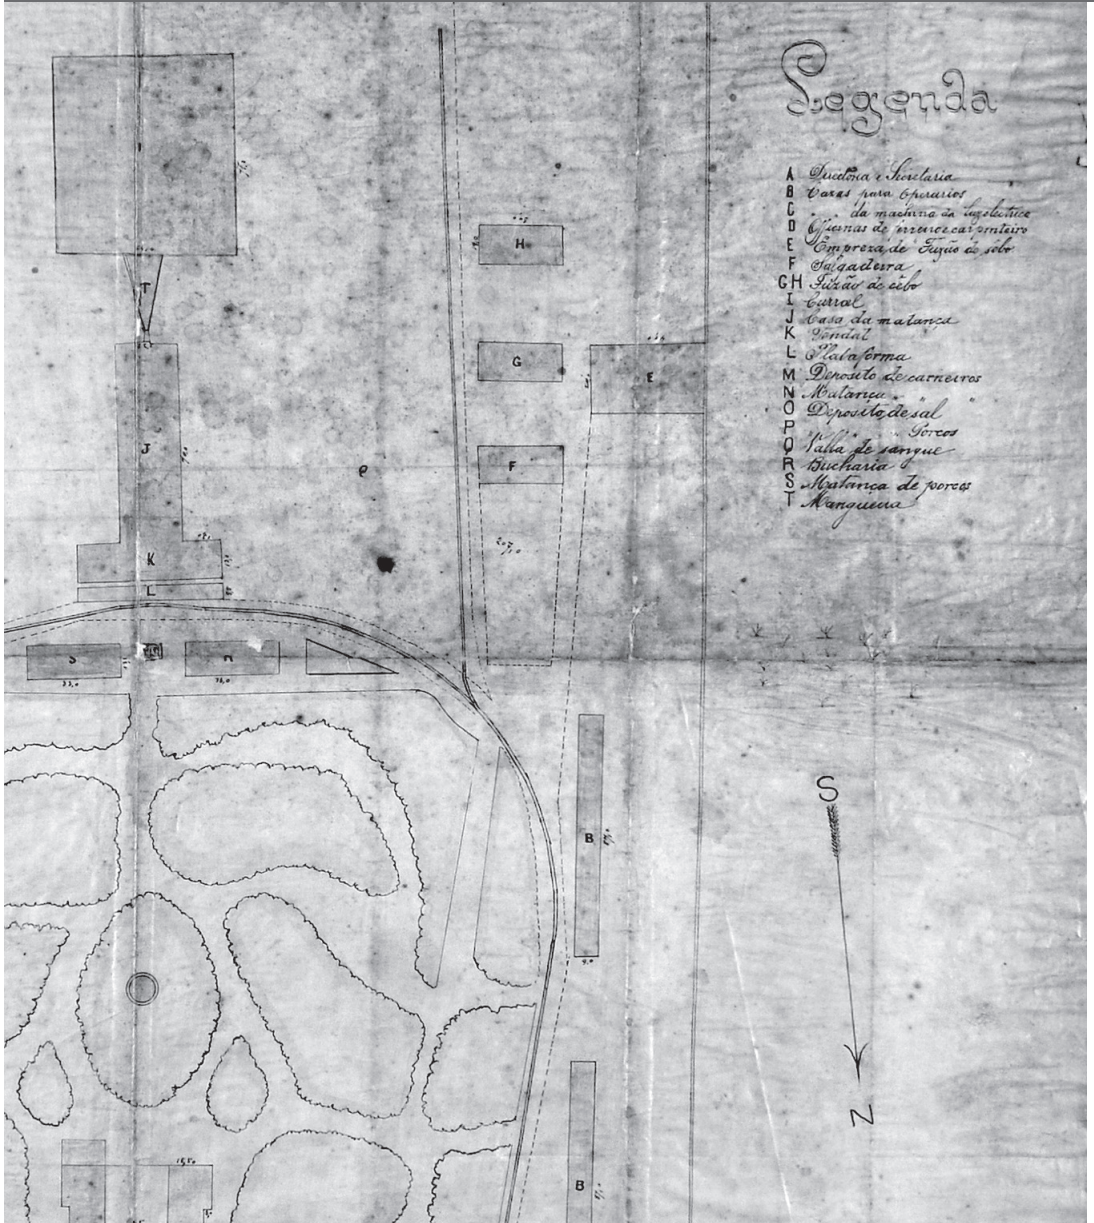 Legenda
A Directoria e Secretaria
B Cazas para Operarios
C " " da machina da luz electrica
D Officinas de ferreiro e carpinteiro
E Empreza de Fuzão de sêbo
F Salgadeira
G H Fuzão de cêbo
I Curral
J Casa da matança
K Tendal
L Plataforma
M Deposito de carneiros
N Matança " "
O Deposito de sal
P " " Porcos
Q Valla de sangue
R Bucharia
S Matança de porcos
T Mangueira
I
H
T
G
E
J
F
K
L
S
B
S
N
B